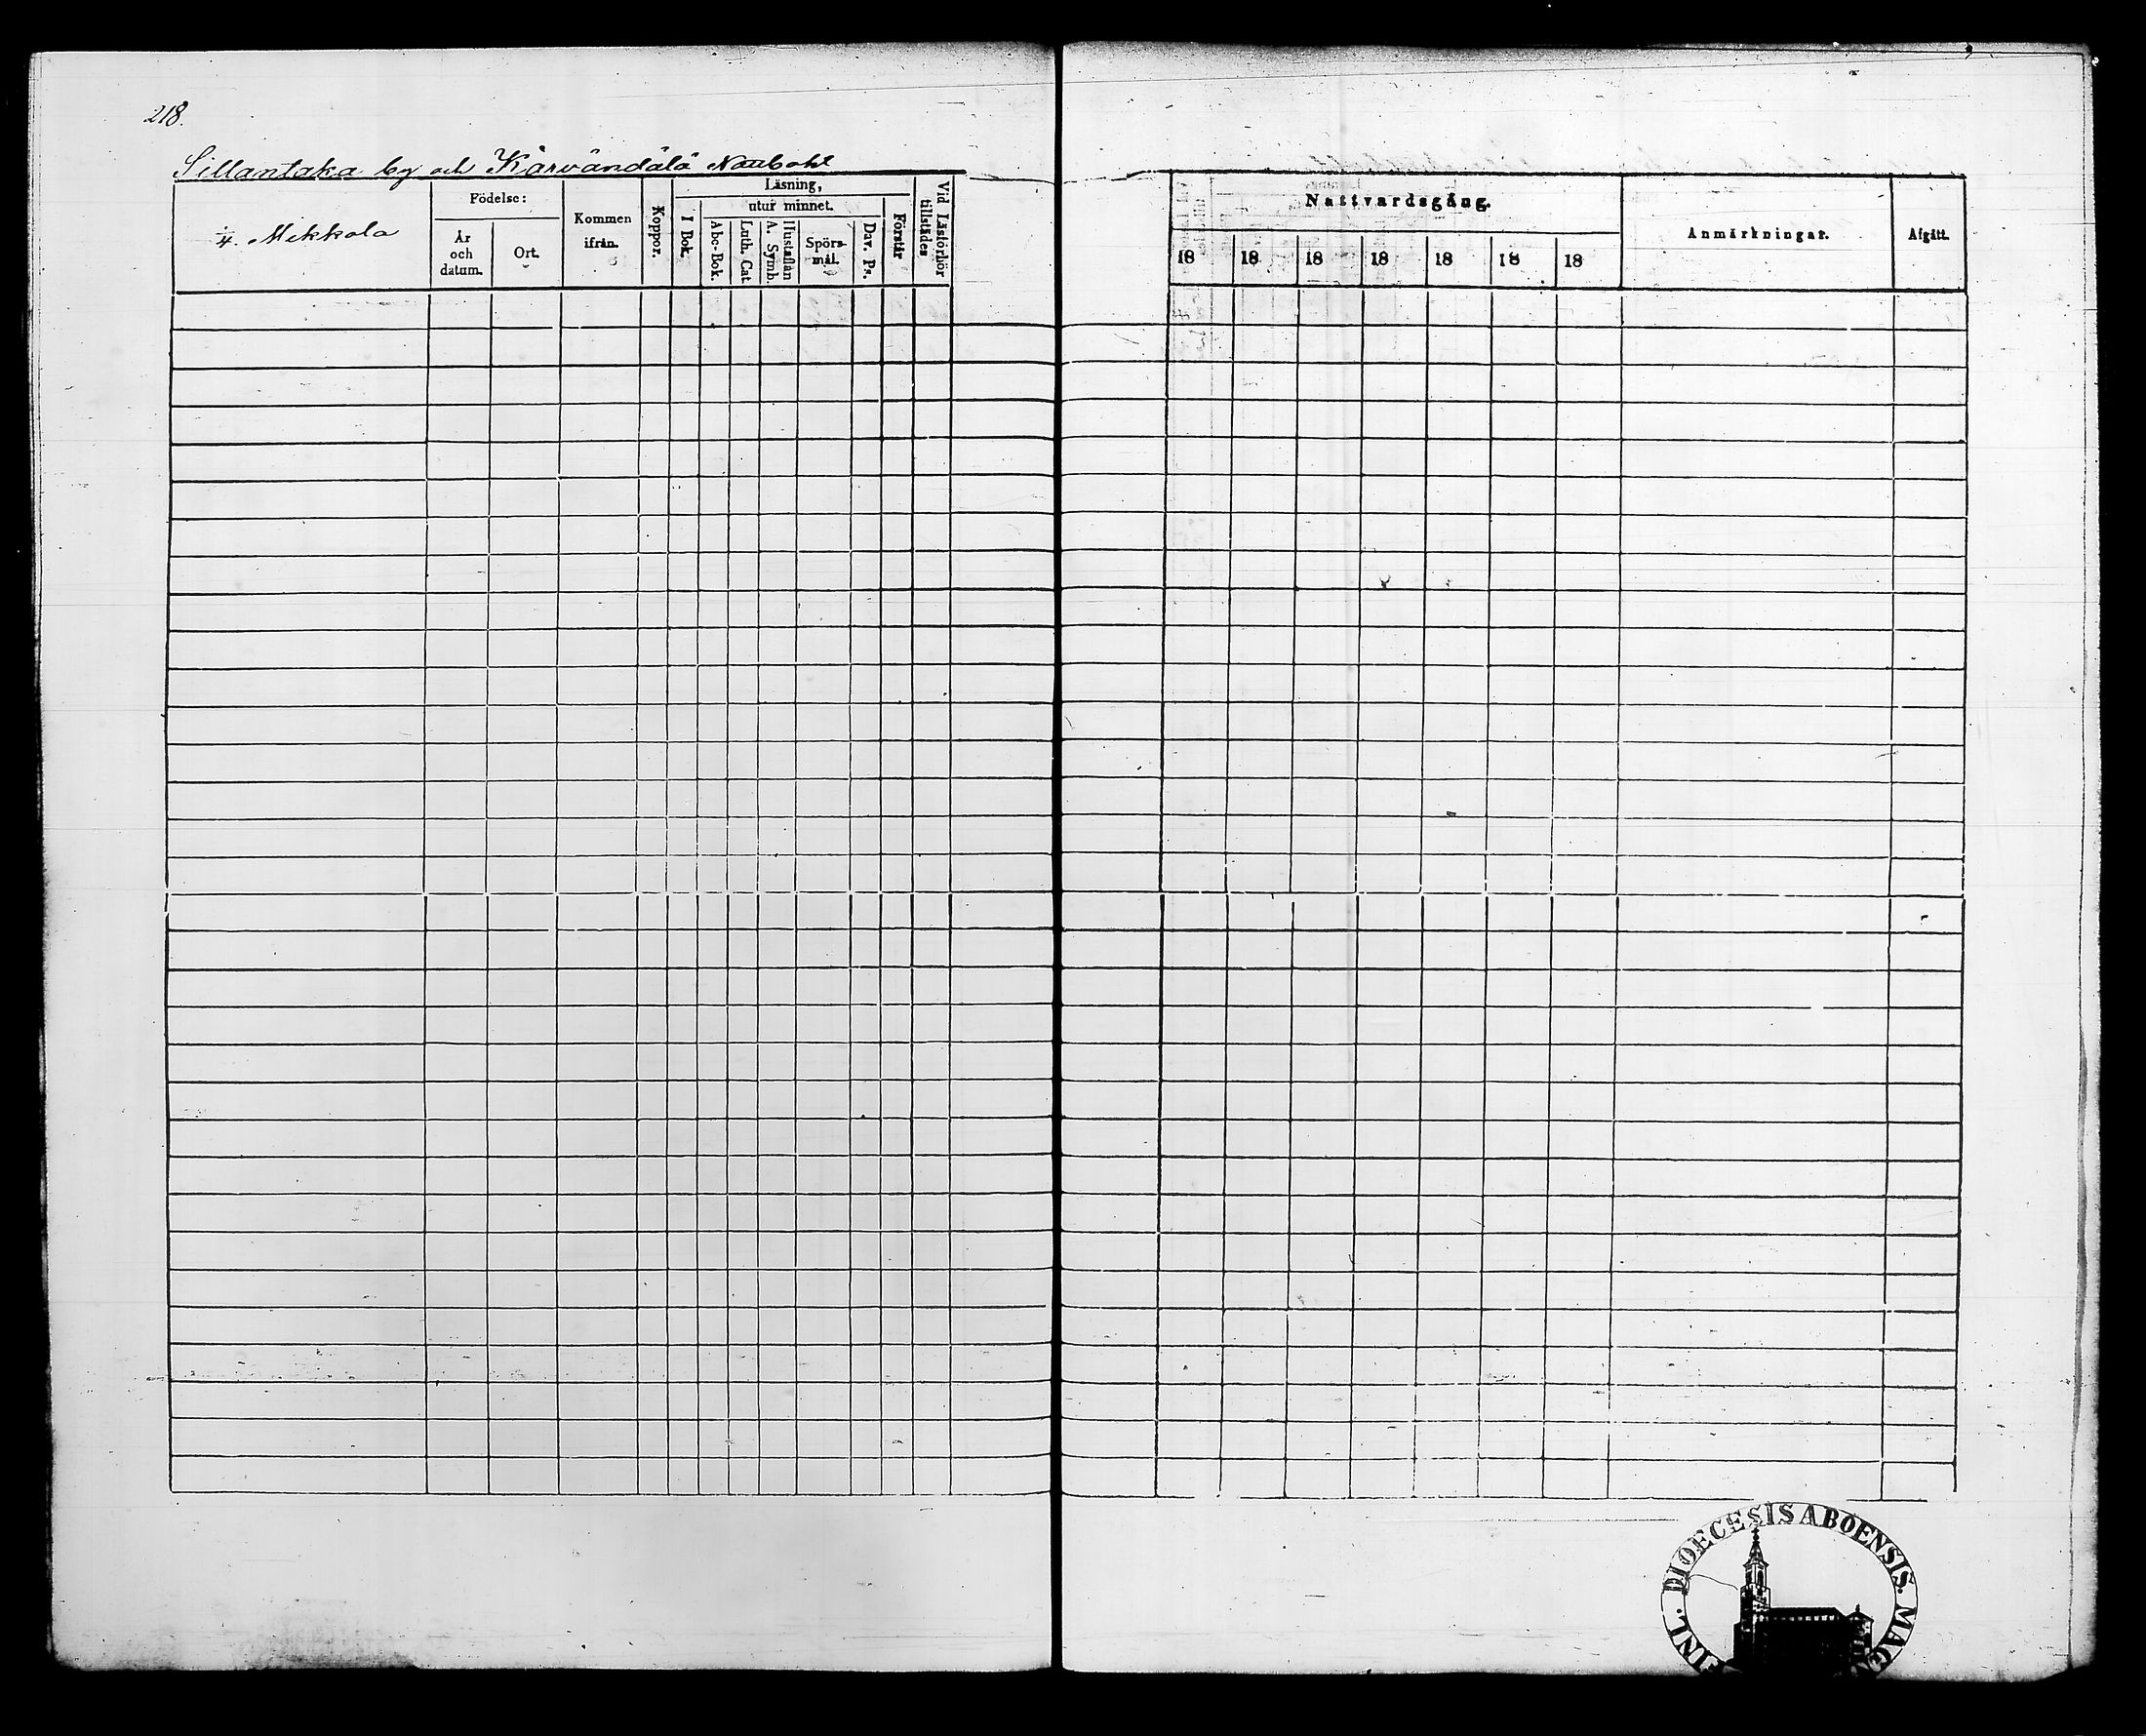 218.
Sillantaka by och Kärvändälä Nattbohl
4. Mikkola
Födelse:
År och datum.
Ort.
Kommen ifrån.
Koppor.
Läsning,
I Bok.
utur minnet.
Abc-Bok.
Luth. Cat.
Hustaflan A. Symb.
Spörs-mål.
Dav. Ps.
Förstår
Vid Läsförhör tillstädes
Nattvardsgång.
18 18 18 18 18 18 18
Anmärkningar.
Afgått.
FINL. DIOECESIS ABOENSIS. MAG